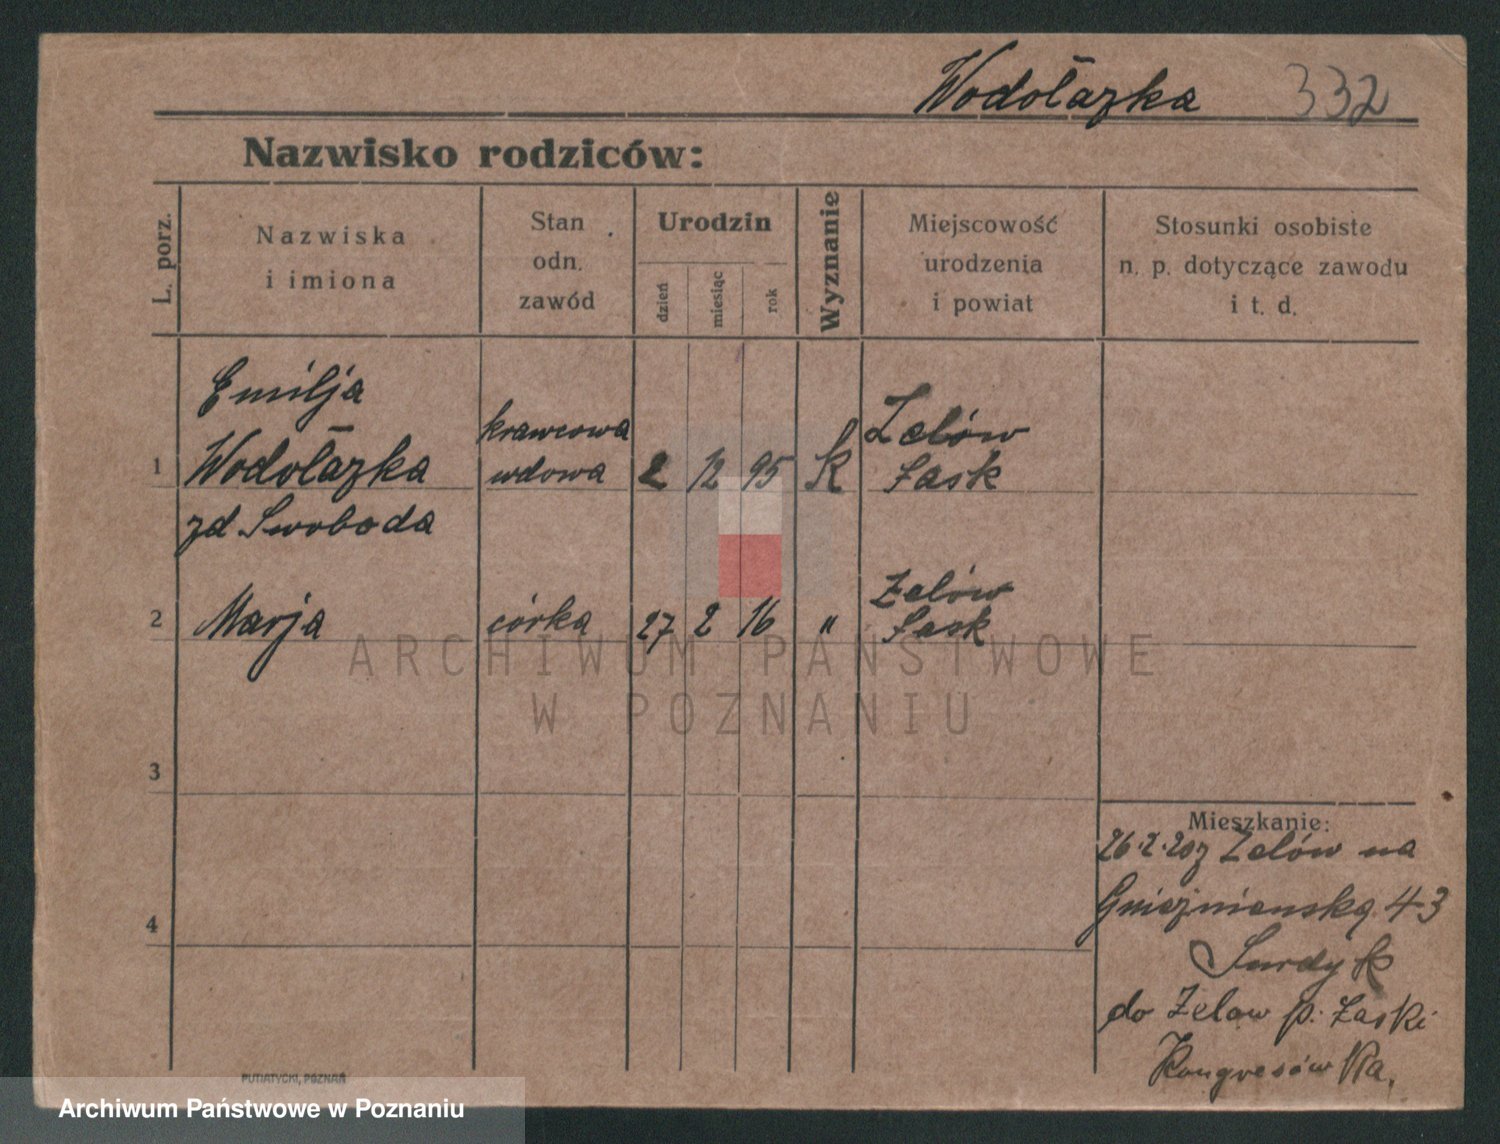 Wodołazka 332
Nazwisko rodziców:
L. porz.
Nazwiska
i imiona
Stan
odn.
zawód
Urodzin
dzień
miesiąc
rok
Wyznanie
Miejscowość
urodzenia
i powiat
Stosunki osobiste
n. p. dotyczące zawodu
i t. d.
Emilja
krawcowa
Zelów
1 Wodołazka wdowa 2 12 95 K Łask
zd Swoboda
Zelów
2 Marja córka 27 2 16 " Łask
ARCHIWUM PAŃSTWOWE
W POZNANIU
3
Mieszkanie:
26.2.20 z Zelów na
4
Gnieźnieńską 43
Surdyk
do Zelow p. Łaski
Kongresówka.
PUTIATYCKI, POZNAŃ
Archiwum Państwowe w Poznaniu